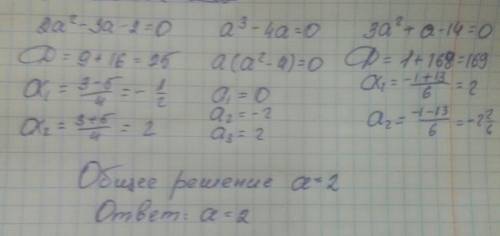 2a² - 3a - 2 = 0
D = 9 + 16 = 25
a₁ = (3-5)/4 = -1/2
a₂ = (3+5)/4 = 2
a³ - 4a = 0
a(a² - 4) = 0
a₁ = 0
a₂ = -2
a₃ = 2
3a² + a - 14 = 0
D = 1 + 168 = 169
a₁ = (-1+13)/6 = 2
a₂ = (-1-13)/6 = -2 2/6
Общее решение a = 2
Ответ: a = 2